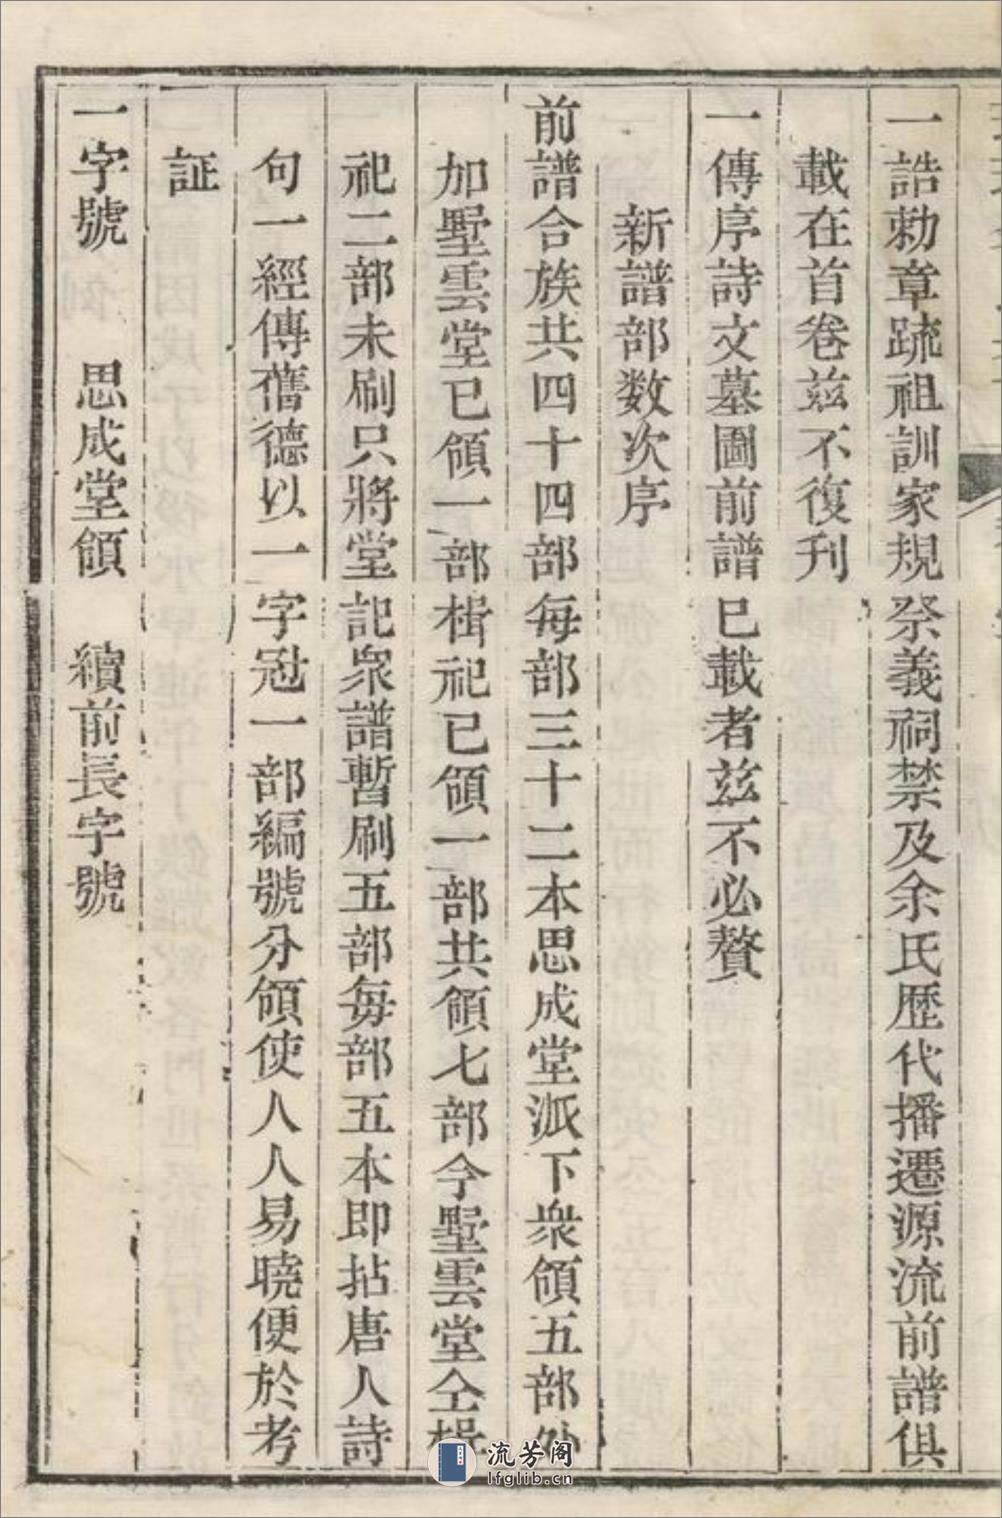 一誥勅章疏祖訓家規祭義祠禁及余氏歷代播遷源流前譜俱
載在首卷玆不復刊
一傳序詩文墓圖前譜已載者玆不必贅
新譜部数次序
前譜合族共四十四部每部三十二本思成堂派下衆領五部外
加墅雲堂已領一部楫祀已領一部共領七部今墅雲堂仝楫
祀二部未刷只將堂記衆譜暫刷五部每部五本即拈唐人詩
句一經傳舊德以一字冠一部編號分領使人人易曉便於考
証
一字號 思成堂領 續前長字號
流芳阁
lfglib.cn